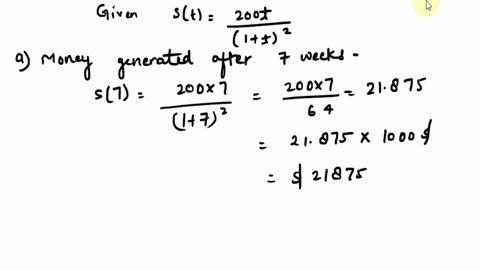 Given S(t) = 200t / (1+t)²
a) Money generated after 7 weeks -
S(7) = 200×7 / (1+7)² = 200×7 / 64 = 21.875
= 21.875 × 1000 $
= $ 21875